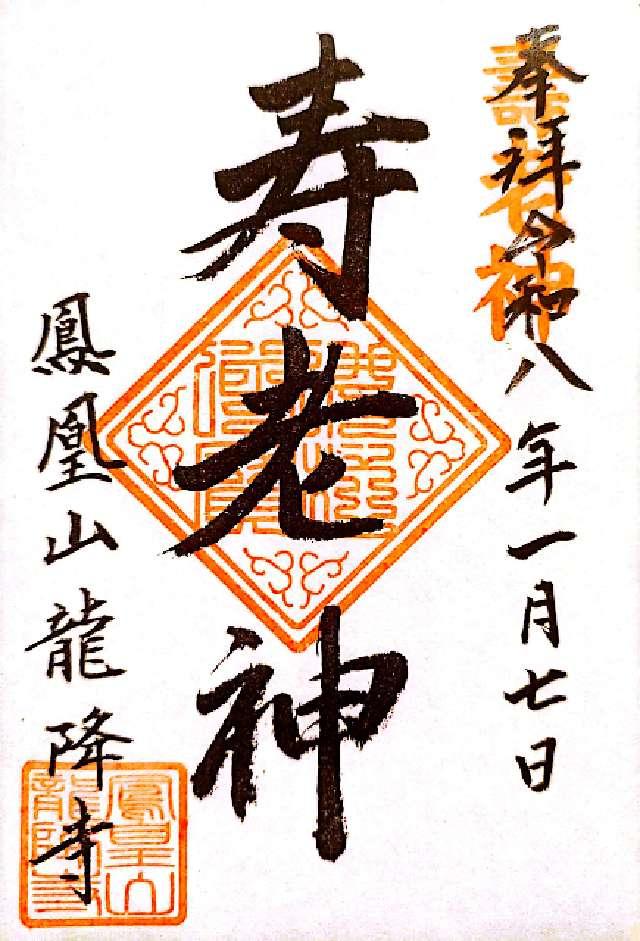 奉拝 令和八年一月七日
壽老神
寿老神
鳳凰山龍降寺
鳳凰山
龍降寺